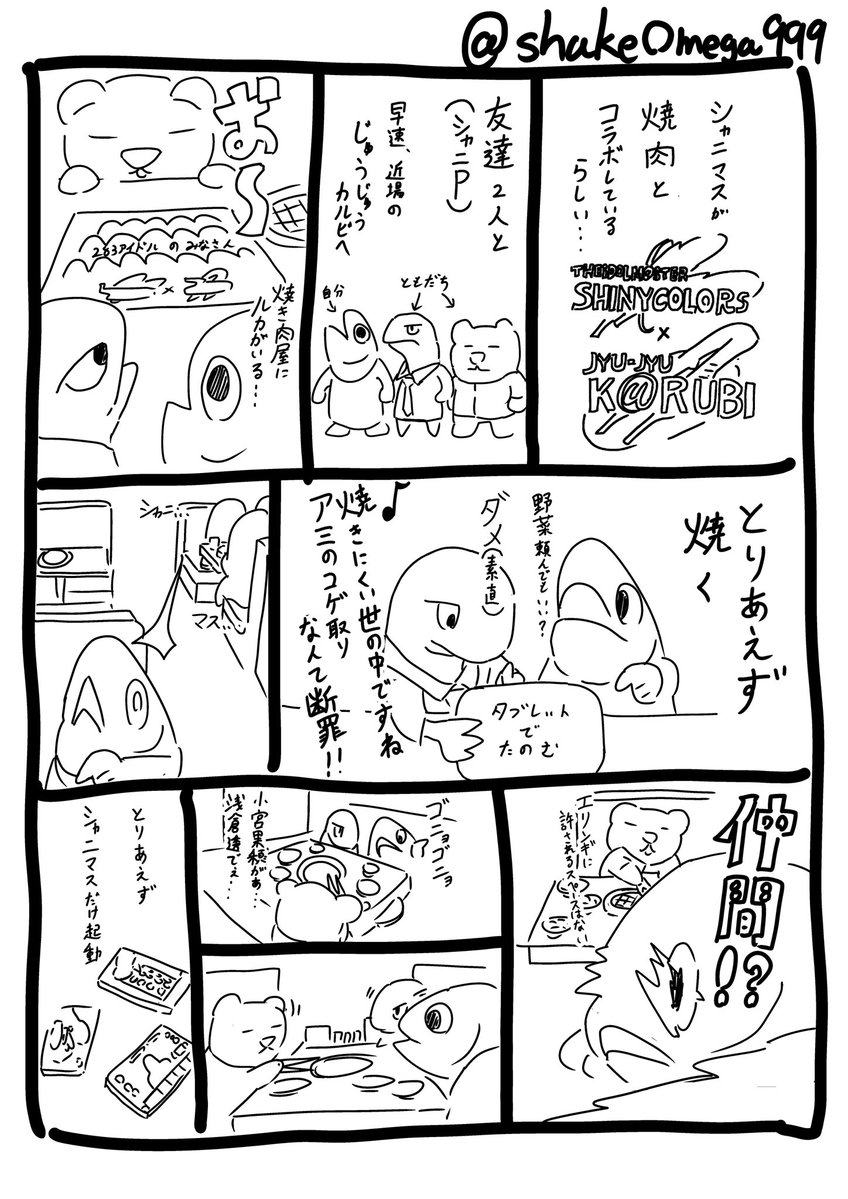 @shakeOmega999
シャニマスが
焼肉と
コラボしている
らしい…
THE IDOLM@STER
SHINYCOLORS
×
JYU-JYU
K@RUBI
友達2人と
(シャニP)
早速、近場の
じゅうじゅう
カルビへ
自分
ともだち
お〜
283アイドルのみなさん
×
焼き肉屋に
ルカがいる…
とりあえず
焼く
野菜頼んでもいい?
ダメ(素直)
タブレット
で
たのむ
♪
焼きにくい世の中ですね
アミのコゲ取り
なんて断罪!!
シャニ…
マス…
仲間!?
エリンギに
許されるスペースはない
ゴニョゴニョ
小宮果穂がぁ…
浅倉透でぇ…
とりあえず
シャニマスだけ起動